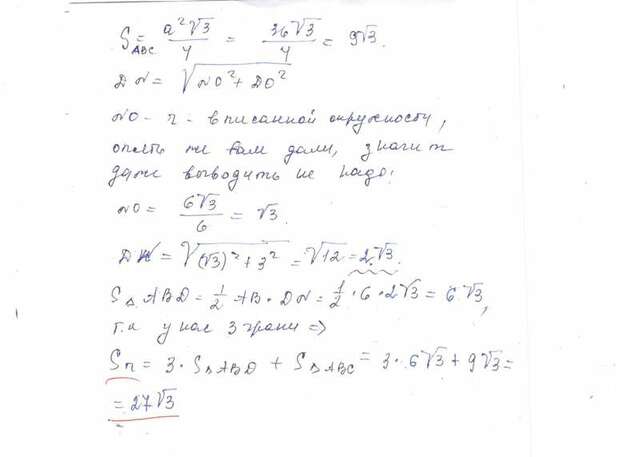 S_ABC = a²√3/4 = 36√3/4 = 9√3.
DN = √(NO² + DO²)
NO - r - вписанной окружности,
опять же вам дали, значит
даже выводить не надо!
NO = 6√3/6 = √3.
DN = √((√3)² + 3²) = √12 = 2√3.
S△ABD = 1/2 AB · DN = 1/2 · 6 · 2√3 = 6√3,
т.к у нас 3 грани =>
Sп = 3 · S△ABD + S△ABC = 3 · 6√3 + 9√3 =
= 27√3